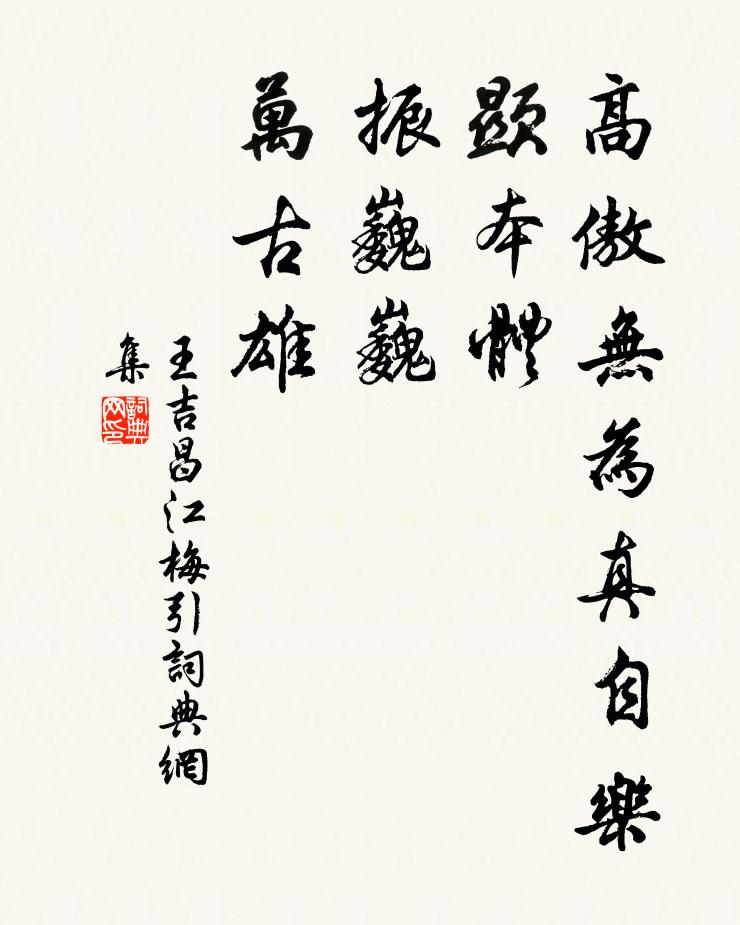 高傲無為真自樂
顯本體
振巍巍
萬古雄
王吉昌江梅引詞典網
集
詞典
网印